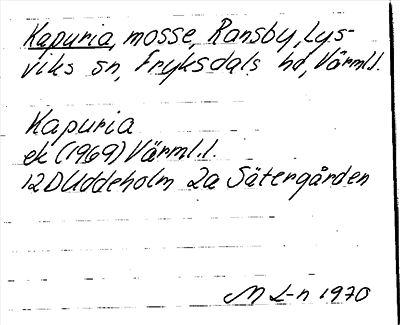 Kapuria, mosse, Ransby, Lys-
viks sn, Fryksdals hd, Värml.l.
Kapuria
ek (1969) Värml.l.
12D Uddeholm 2a Sätergården
M L-n 1970